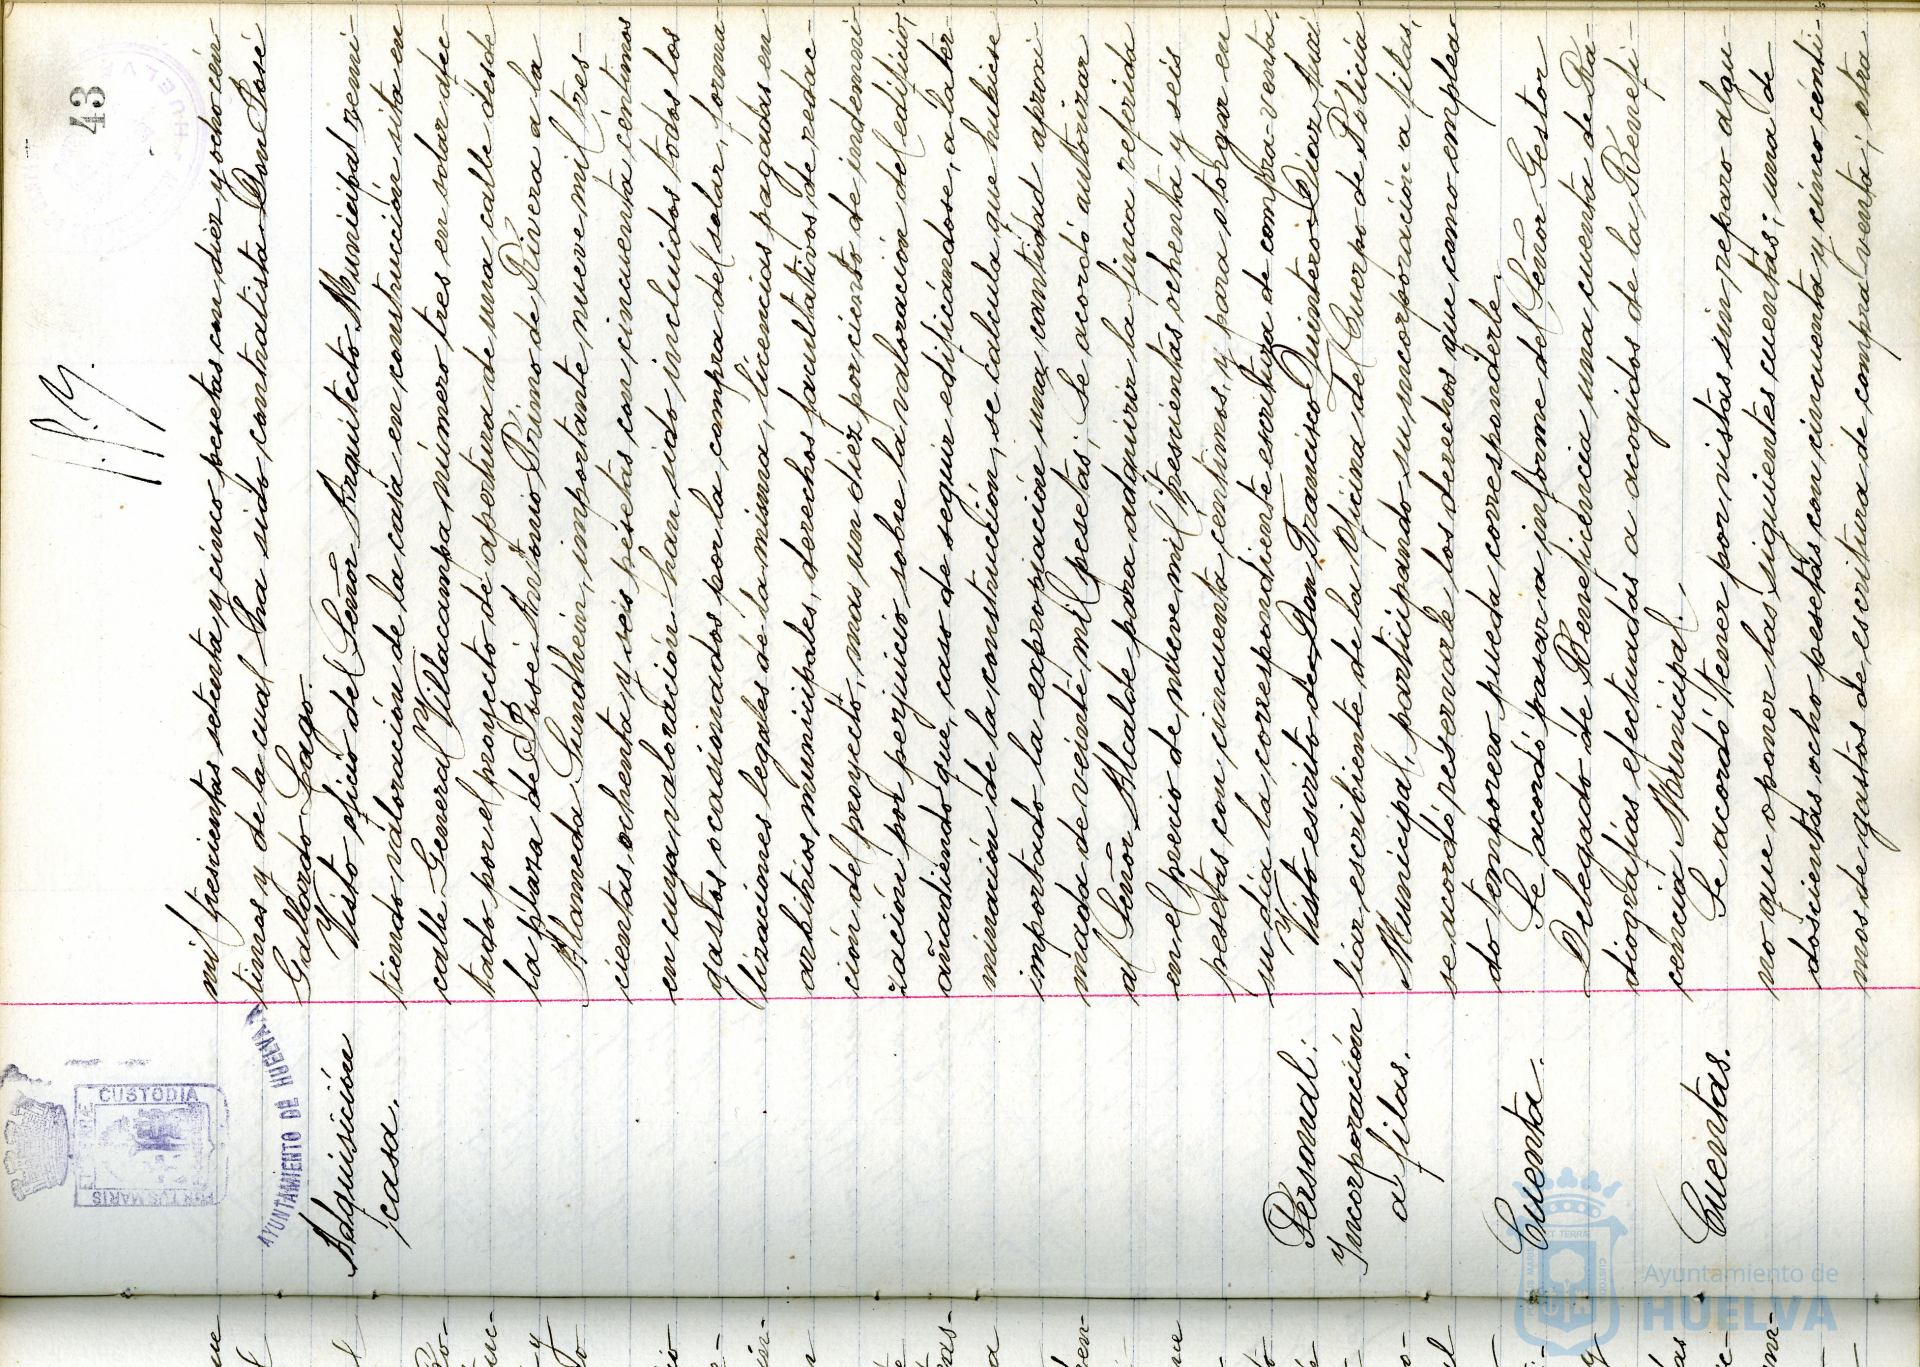 43
mil trescientas setenta y cinco pesetas con diez y ocho cén-
timos y de la cual ha sido contratista Don José
Gallardo Lago.
Adquisición
casa.
Visto oficio del Señor Arquitecto Municipal remi-
tiendo valoración de la casa en construcción sita en
calle General Villacampa número tres en solar afec-
tado por el proyecto de apertura de una calle desde
la plaza de José Antonio Primo de Rivera a la
Alameda Sundheim, importante nueve mil tres-
cientas ochenta y seis pesetas con cincuenta céntimos
en cuya valoración han sido incluidos todos los
gastos ocasionados por la compra del solar, forma-
lizaciones legales de la misma, licencias pagadas en
arbitrios municipales, derechos facultativos de redac-
ción del proyecto, mas un diez por ciento de indemni-
zación por perjuicio sobre la valoración del edificio,
añadiendo que, caso de seguir edificándose, a la ter-
minación de la construcción, se calcula que hubiese
importado la expropiación una cantidad aproxi-
mada de veinte mil pesetas; Se acordó autorizar
al Señor Alcalde para adquirir la finca referida
en el precio de nueve mil trescientas ochenta y seis
pesetas con cincuenta centimos, y para otorgar en
su día la correspondiente escritura de compra-venta.
Personal:
Yncorporación
a filas.
Visto escrito de Don Francisco Quintero Díaz Auxi
liar escribiente de la Oficina del Cuerpo de Policía
Municipal, participando su incorporación a filas,
se acordó reservarle los derechos que como emplea-
do temporero pueda corresponderle.
Cuenta.
Se acordó pasar a informe del Señor Gestor
Delegado de Beneficencia una cuenta de Ra-
diografías efectuadas a acogidos de la Benefi-
cencia Municipal.
Cuentas.
Se acordó tener por vistas sin reparo algu-
no que oponer las siguientes cuentas; una de
doscientas ocho pesetas con cincuenta y cinco cénti-
mos de gastos de escritura de compra-venta; otra
CUSTODIA
PORTVS MARIS
AYUNTAMIENTO DE HUELVA
Ayuntamiento de
HUELVA